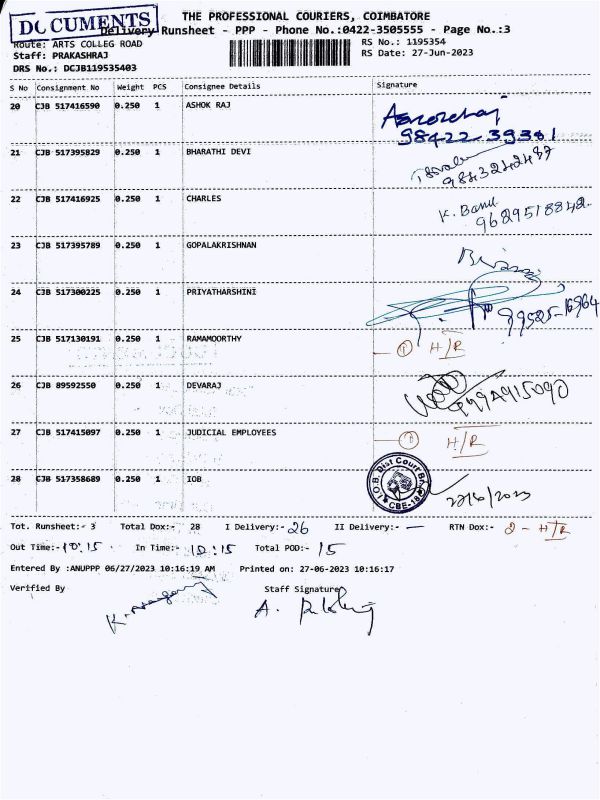 DOCUMENTS
THE PROFESSIONAL COURIERS, COIMBATORE
Delivery Runsheet - PPP - Phone No.:0422-3505555 - Page No.:3
Route: ARTS COLLEG ROAD
RS No.: 1195354
Staff: PRAKASHRAJ
RS Date: 27-Jun-2023
DRS No.: DCJB119535403
S No Consignment No Weight PCS Consignee Details Signature
20 CJB 517416590 0.250 1 ASHOK RAJ
98422-39361
21 CJB 517395829 0.250 1 BHARATHI DEVI
9843242487
22 CJB 517416925 0.250 1 CHARLES K. Banu
9629518842
23 CJB 517395789 0.250 1 GOPALAKRISHNAN
24 CJB 517300225 0.250 1 PRIYATHARSHINI
99525-16964
25 CJB 517130191 0.250 1 RAMAMOORTHY ① H/R
26 CJB 89592550 0.250 1 DEVARAJ
27 CJB 517415097 0.250 1 JUDICIAL EMPLOYEES ① H/R
28 CJB 517358689 0.250 1 IOB I.O.B. Dist Court Br. CBE-18
Tot. Runsheet:- 3 Total Dox:- 28 I Delivery:- 26 II Delivery:- — RTN Dox:- 2 - H/R
Out Time:- 10:15 In Time:- 10:15 Total POD:- 15
Entered By :ANUPPP 06/27/2023 10:16:19 AM Printed on: 27-06-2023 10:16:17
Verified By Staff Signature